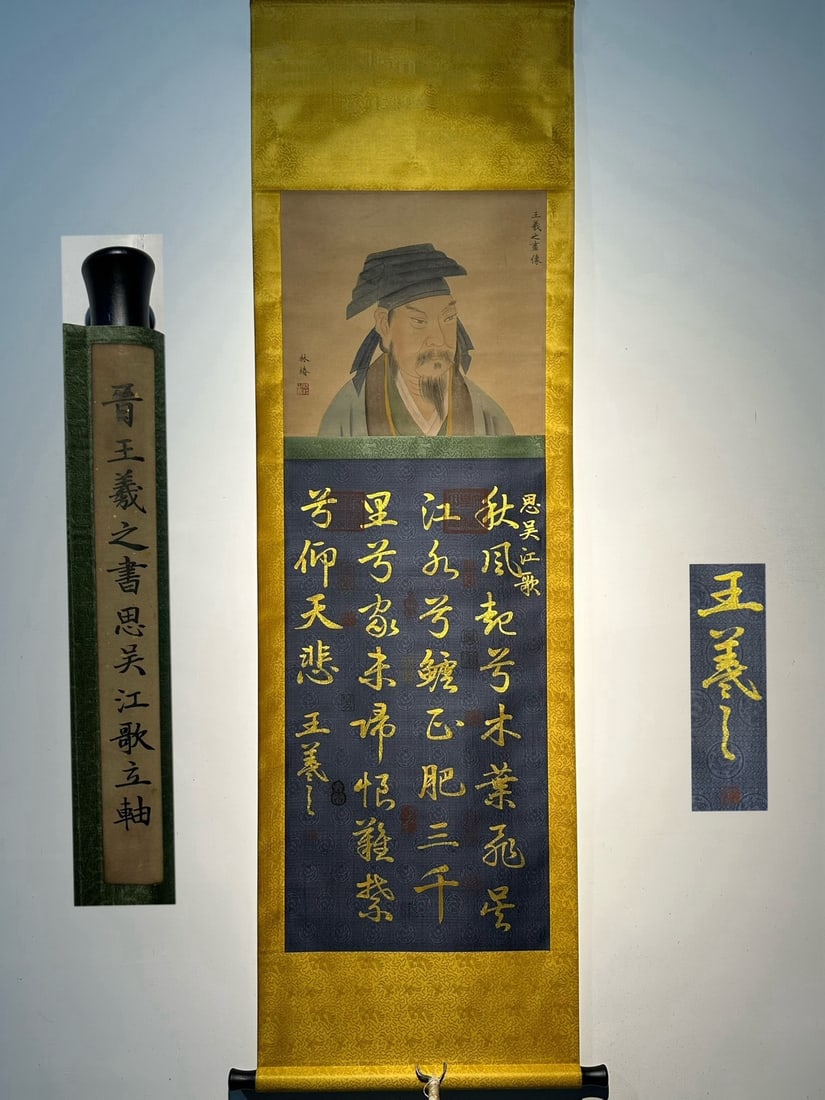 王羲之畫像
林椿
思吴江歌
秋風起兮木葉飛吴
江水兮鱸正肥三千
里兮家未歸恨難禁
兮仰天悲
王羲之
晋王羲之書思吴江歌立軸
王羲之